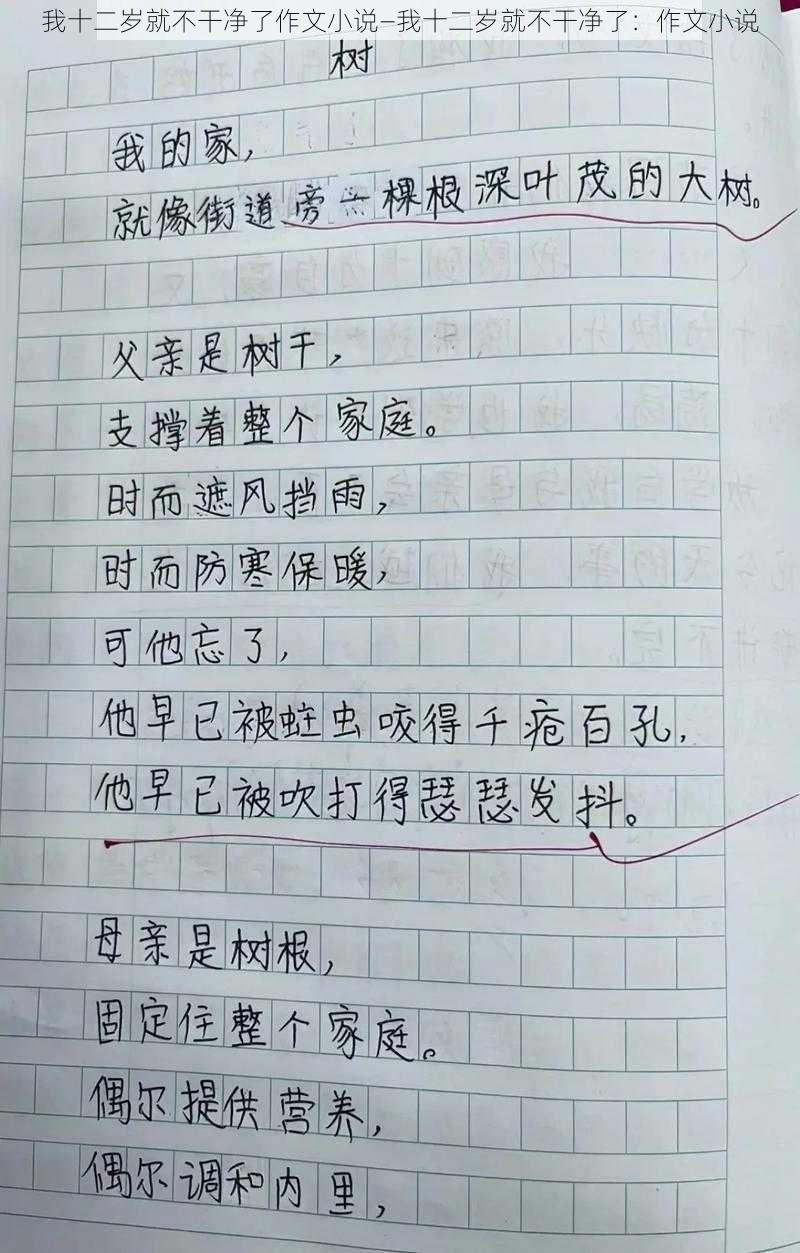 我十二岁就不干净了作文小说—我十二岁就不干净了：作文小说
树
我的家，
就像街道旁一棵根深叶茂的大树。
父亲是树干，
支撑着整个家庭。
时而遮风挡雨，
时而防寒保暖，
可他忘了，
他早已被蛀虫咬得千疮百孔，
他早已被吹打得瑟瑟发抖。
母亲是树根，
固定住整个家庭。
偶尔提供营养，
偶尔调和内里，